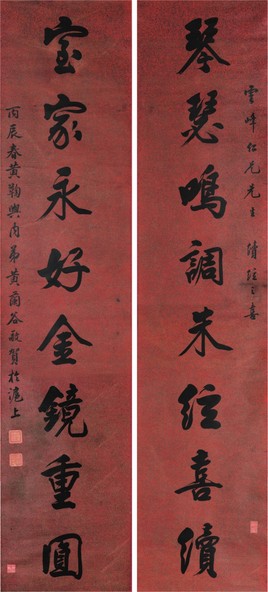 雲峰仁兄先生 續弦之喜
琴瑟鳴調朱弦喜續
室家永好金鏡重圓
丙辰春黄勒興内弟黄爾谷敬賀於滬上